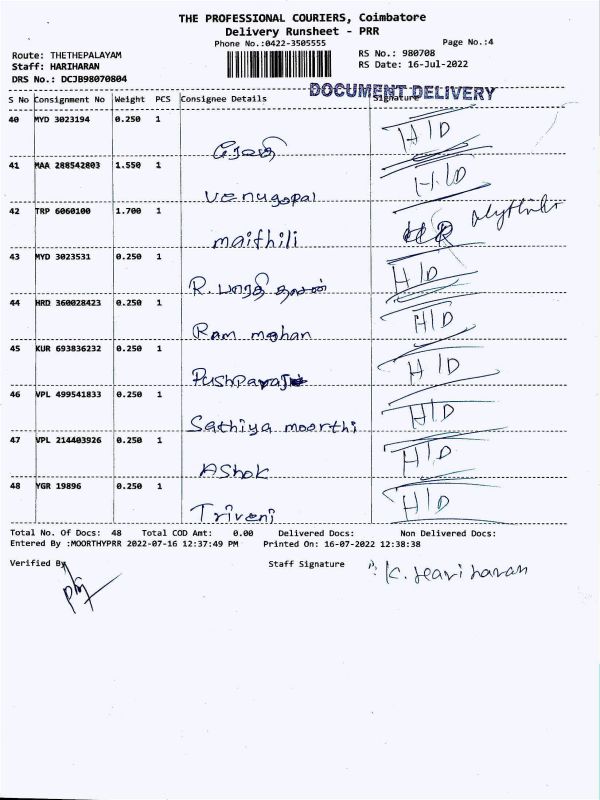 THE PROFESSIONAL COURIERS, Coimbatore
Delivery Runsheet - PRR
Phone No.:0422-3505555
Page No.:4
Route: THETHEPALAYAM
RS No.: 980708
Staff: HARIHARAN
RS Date: 16-Jul-2022
DRS No.: DCJB98070804
DOCUMENT DELIVERY
S No Consignment No Weight PCS Consignee Details Signature
40 MYD 3023194 0.250 1
H/D
41 MAA 288542803 1.550 1
Venugopal H/D
42 TRP 6060100 1.700 1
maithili
43 MYD 3023531 0.250 1
R. பாரதி தாசன் H/D
44 HRD 360028423 0.250 1
Ram mohan H/D
45 KUR 693836232 0.250 1
Pushparaj H/D
46 VPL 499541833 0.250 1
Sathiya moorthi H/D
47 VPL 214403926 0.250 1
AShok H/D
48 YGR 19896 0.250 1
Triveni H/D
Total No. Of Docs: 48 Total COD Amt: 0.00 Delivered Docs: Non Delivered Docs:
Entered By :MOORTHYPRR 2022-07-16 12:37:49 PM Printed On: 16-07-2022 12:38:38
Verified By
Staff Signature K. Hari haran